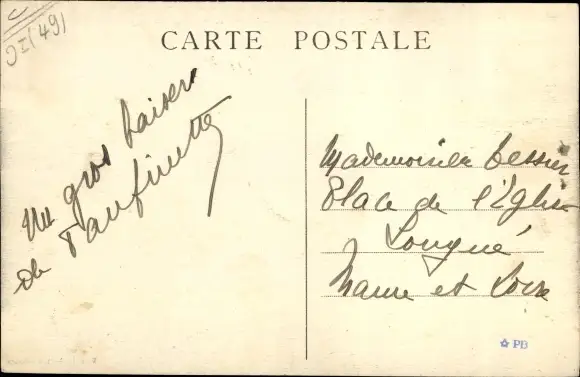 (49)
CARTE POSTALE
Un gros baiser
de Fanfinette
Mademoiselle Cessier
Place de l'Eglise
Longué
Maine et Loire
PB